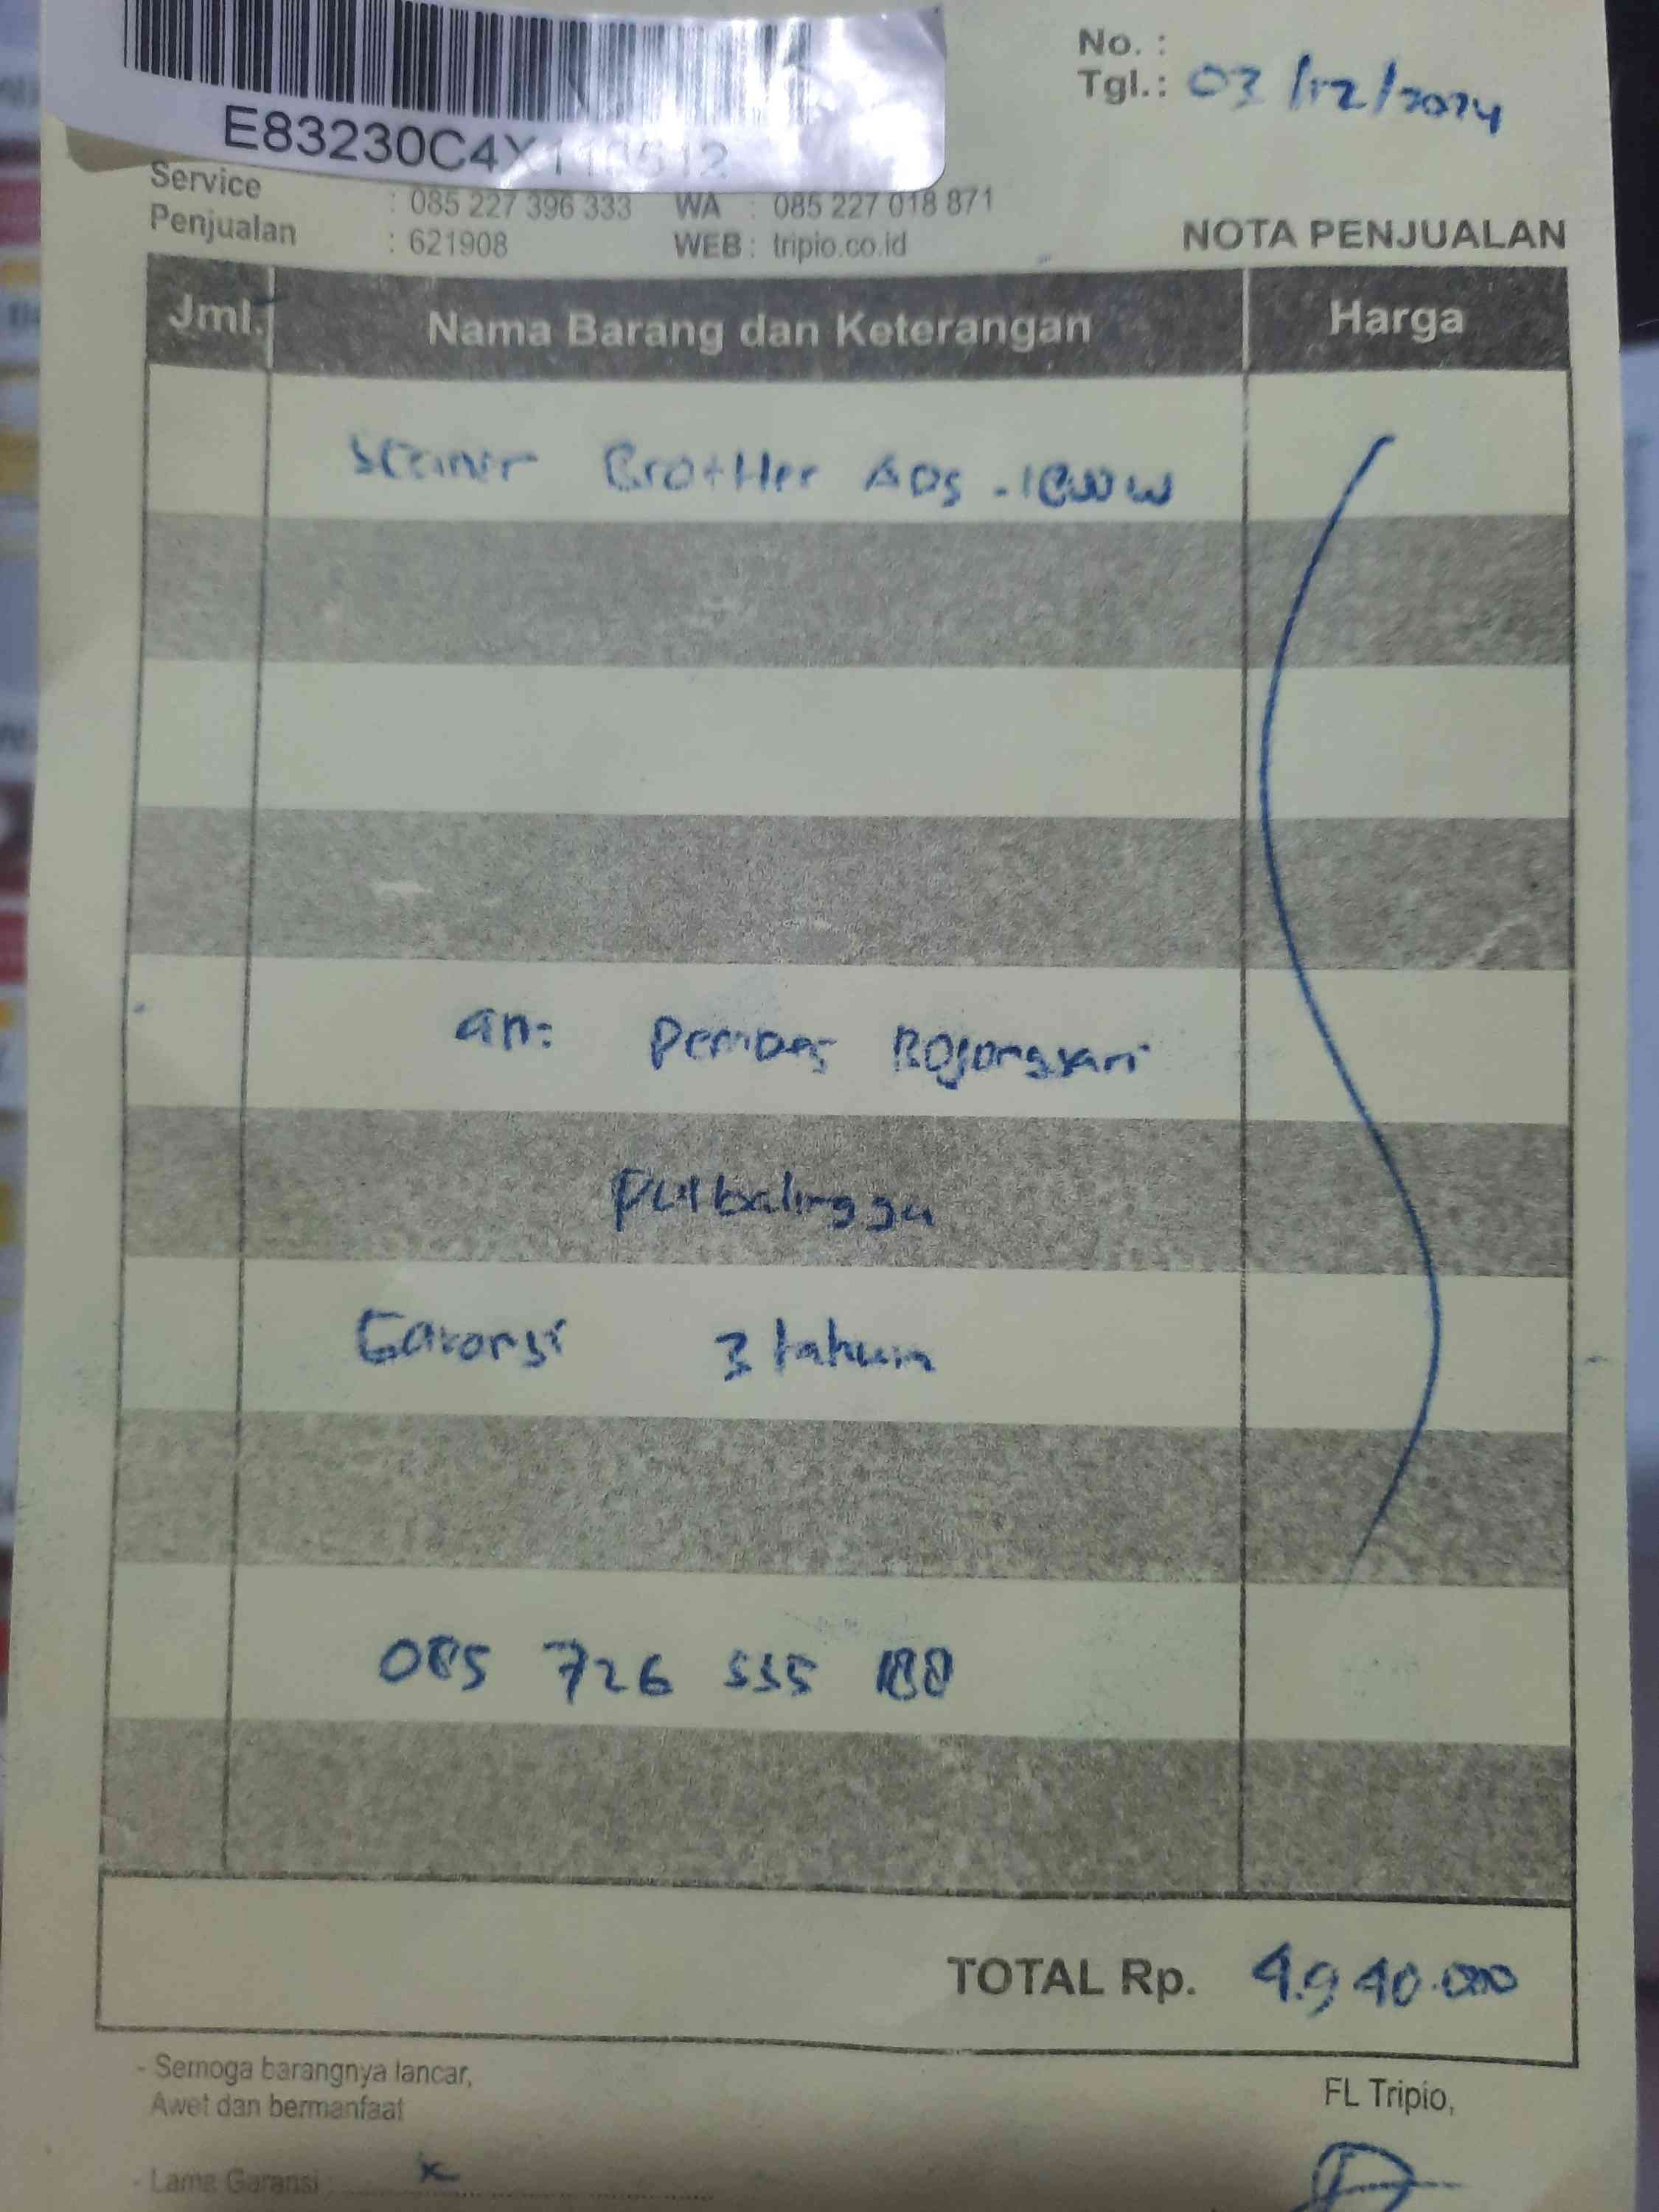 No. :
Tgl. : 03/12/2024
E83230C4X110512
Service : 085 227 396 333 WA : 085 227 018 871
Penjualan : 621908 WEB : tripio.co.id
NOTA PENJUALAN
Jml. Nama Barang dan Keterangan Harga
Scaner Brother ADS - 1800W
an: Pemdes Bojongsari
Purbalingga
Garansi 3 tahun
085 726 555 188
TOTAL Rp. 4.940.000
- Semoga barangnya lancar,
Awet dan bermanfaat
FL Tripio,
- Lama Garansi : x